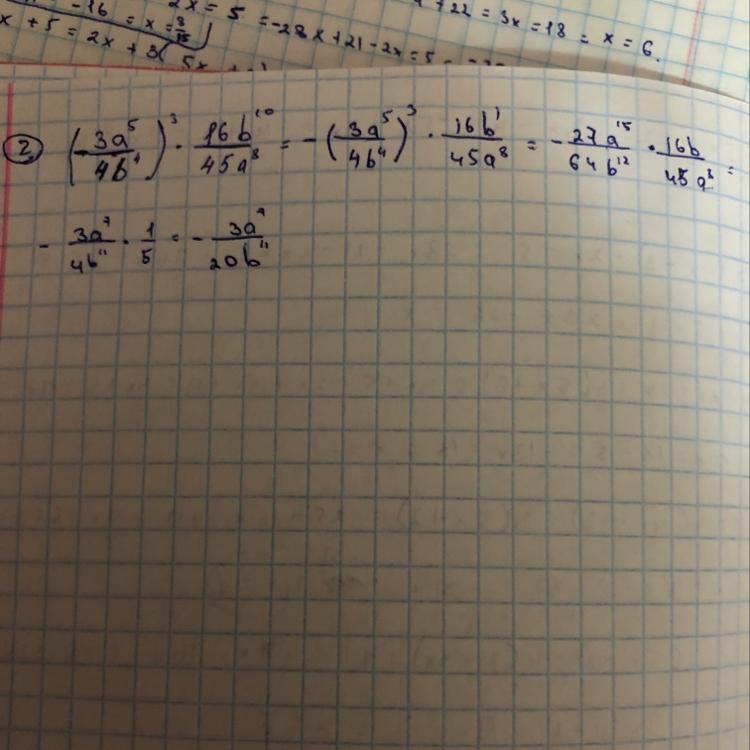 -16 = x = 8/15 2x = 5 = -28x + 21 - 2x = 5 + 22 = 3x = 18 = x = 6.
x + 5 = 2x + 3( 5x
② (-3a⁵/4b⁴)³ · 16b¹⁰/45a⁸ = -(3a⁵/4b⁴)³ · 16b¹/45a⁸ = - 27a¹⁵/64b¹² · 16b/45a⁸ =
- 3a⁷/4b¹¹ · 1/5 = - 3a⁷/20b¹¹